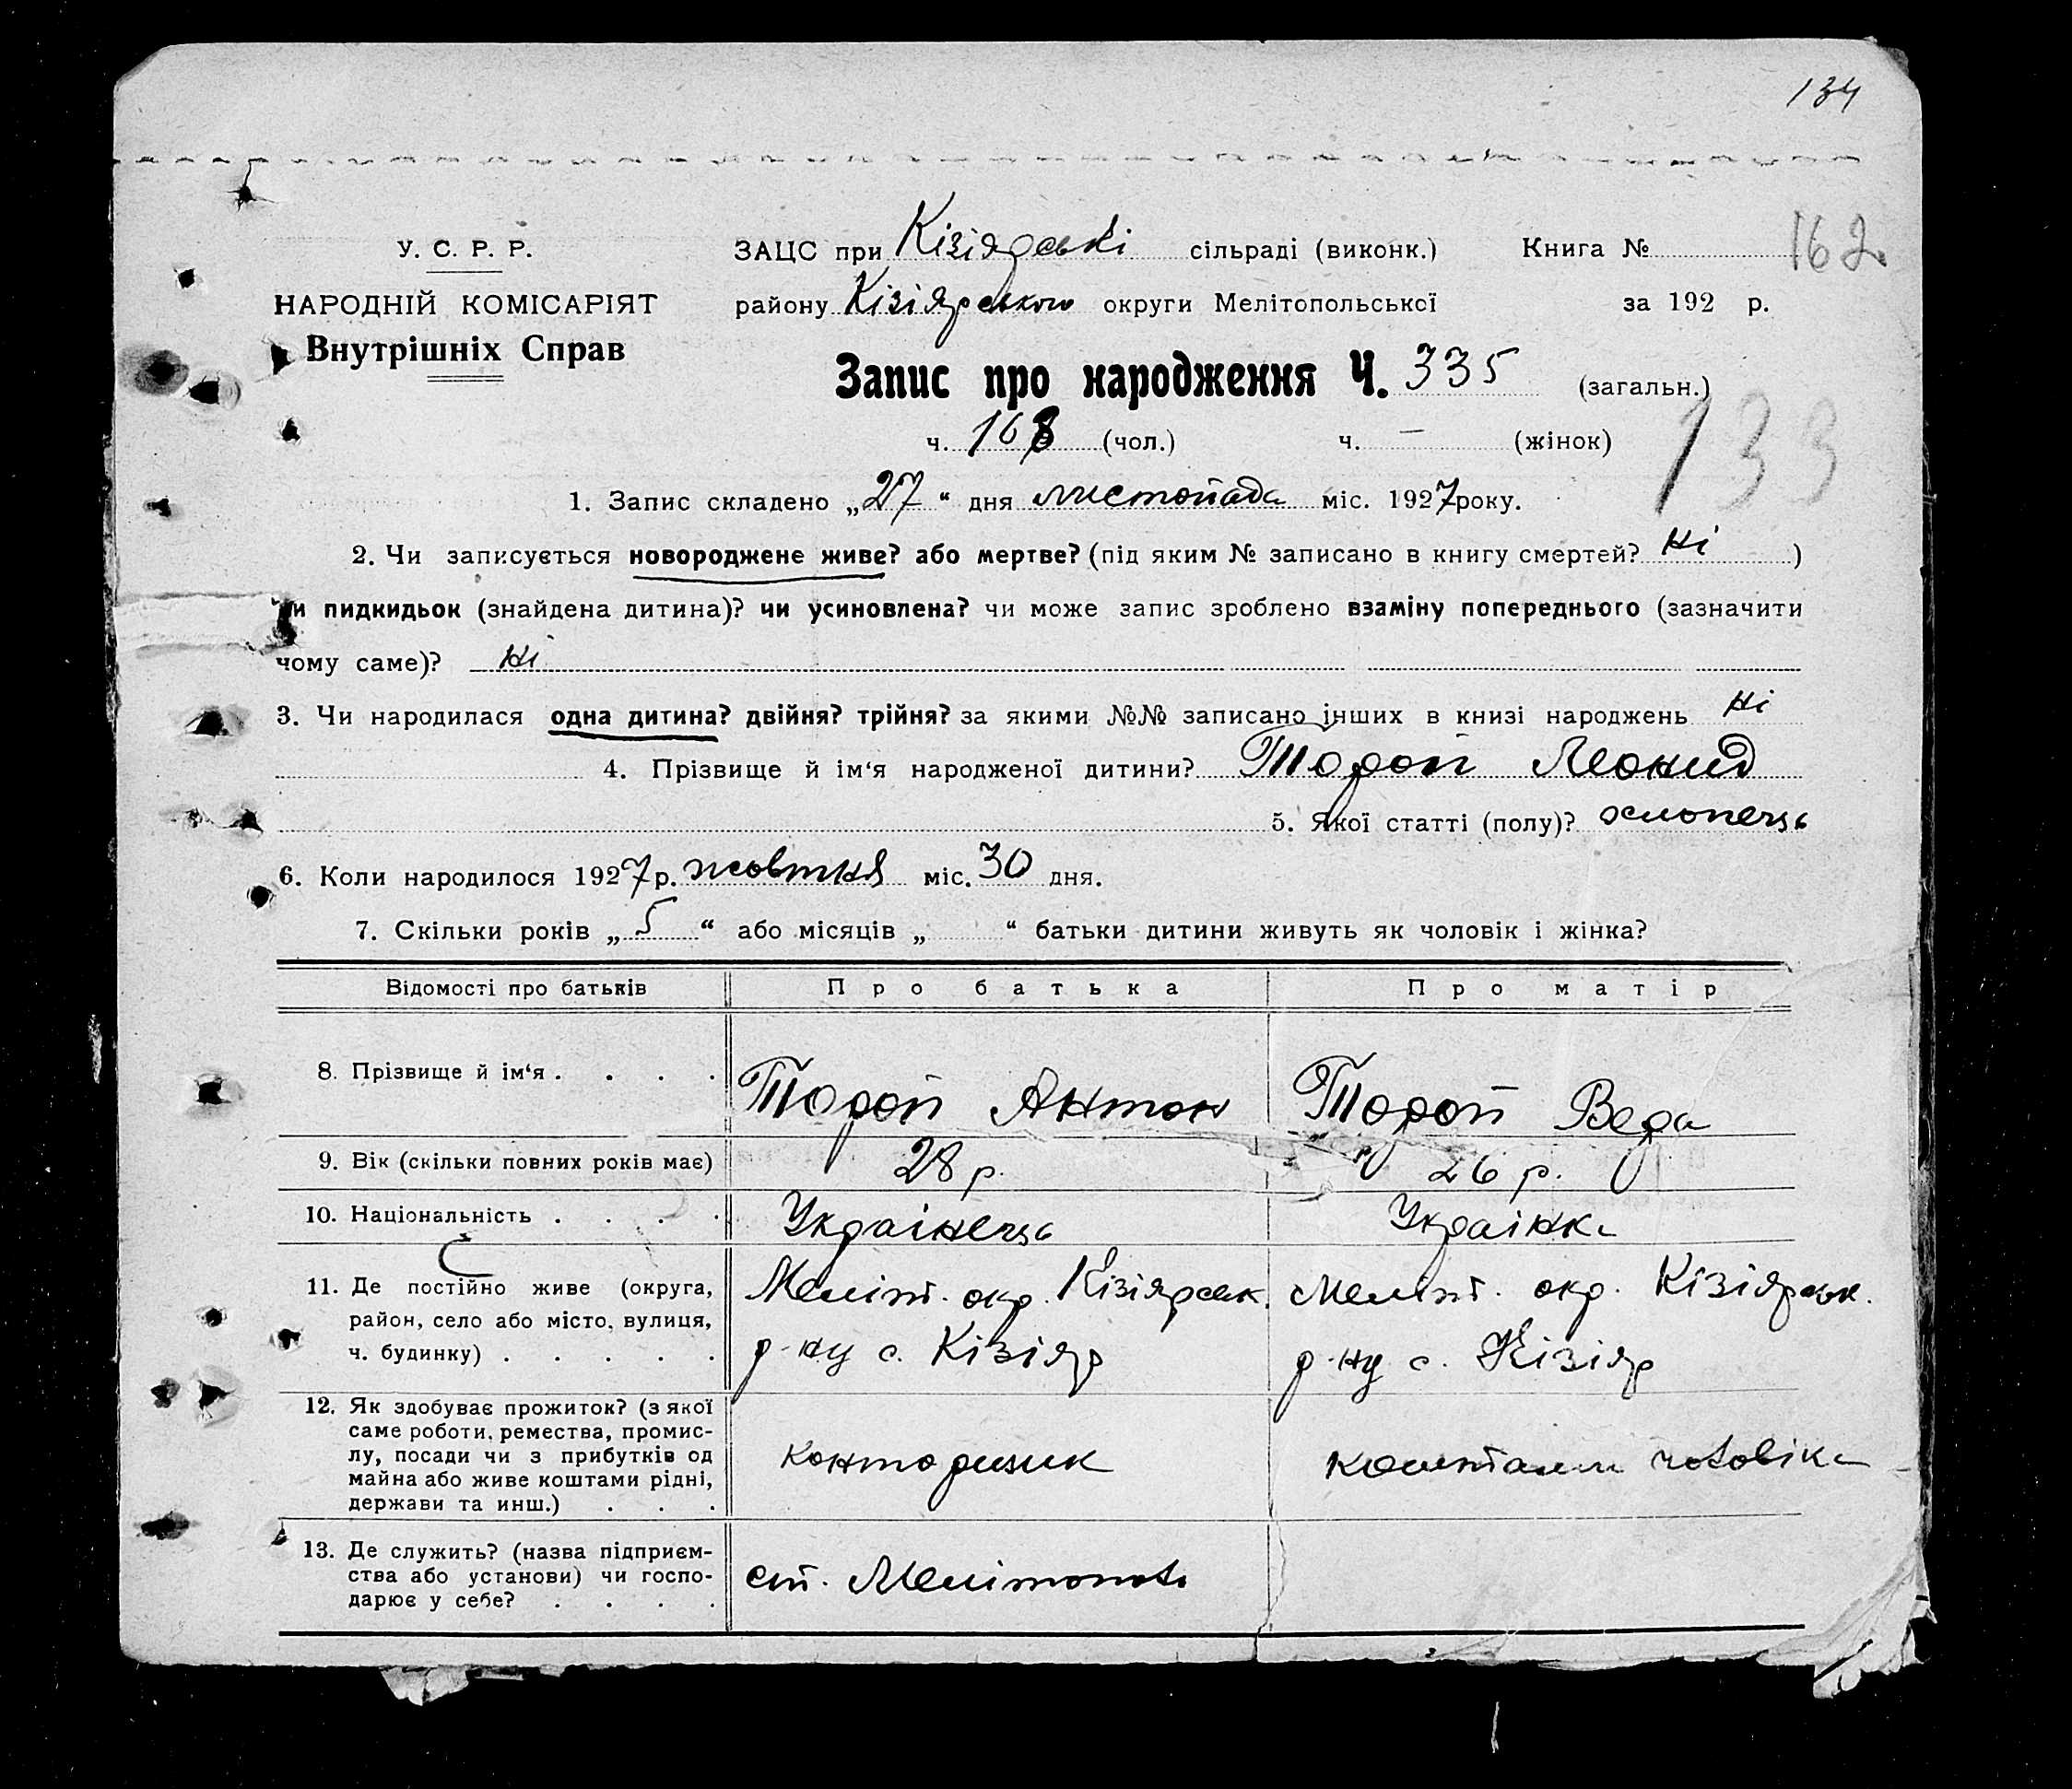 134
У. С. Р. Р.
НАРОДНІЙ КОМІСАРІЯТ
Внутрішніх Справ
ЗАЦС при Кізіярські сільраді (виконк.) Книга № 162
району Кізіярського округи Мелітопольської за 192 р.
Запис про народження Ч. 335 (загальн.)
ч. 168 (чол.) ч. — (жінок)
133
1. Запис складено „27“ дня листопада міс. 1927 року.
2. Чи записується новороджене живе? або мертве? (під яким № записано в книгу смертей? Ні )
чи пидкидьок (знайдена дитина)? чи усиновлена? чи може запис зроблено взаміну попереднього (зазначити
чому саме)? Ні
3. Чи народилася одна дитина? двійня? трійня? за якими №№ записано інших в книзі народжень Ні
4. Прізвище й ім‘я народженої дитини? Тороп Леонид
5. Якої статті (полу)? хлопець
6. Коли народилося 1927 р. жовтня міс. 30 дня.
7. Скільки років „5“ або місяців „ “ батьки дитини живуть як чоловік і жінка?
Відомості про батьків Про батька Про матір
8. Прізвище й ім‘я . . . . Тороп Антон Тороп Вера
9. Вік (скільки повних років має) 28 р. 26 р.
10. Національність . . . . Українець Українка
11. Де постійно живе (округа, Меліт. окр. Кізіярськ. Меліт. окр. Кізіярськ.
район, село або місто, вулиця, р-ну с. Кізіяр р-ну с. Кізіяр
ч. будинку) . . . . .
12. Як здобуває прожиток? (з якої
саме роботи, ремества, промис-
лу, посади чи з прибутків од конторщик коштами чоловіка
майна або живе коштами рідні,
держави та инш.) . . .
13. Де служить? (назва підприєм-
ства або установи) чи госпо- ст. Мелітополь
дарює у себе? . . . .